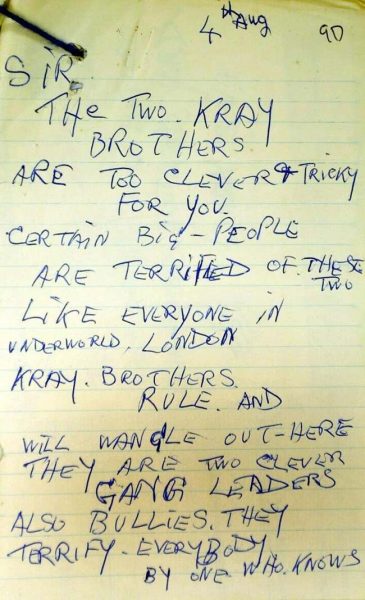 4th Aug
90
SIR
THE TWO. KRAY
BROTHERS
ARE TOO CLEVER & TRICKY
FOR YOU.
CERTAIN BIG - PEOPLE
ARE TERRIFIED OF. THESE
TWO
LIKE EVERYONE IN
UNDERWORLD, LONDON
KRAY. BROTHERS.
RULE. AND
WILL WANGLE OUT-HERE
THEY ARE TWO CLEVER
GANG LEADERS
ALSO BULLIES. THEY
TERRIFY - EVERYBODY
BY ONE WHO. KNOWS